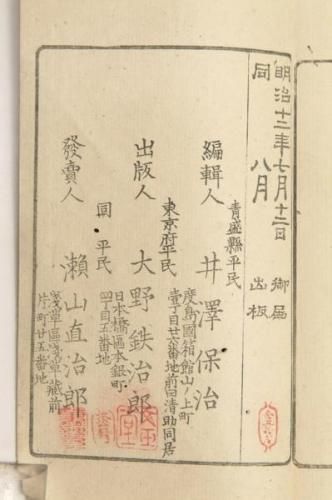 明治十二年七月十二日 御届
同 八月 出板
青盛縣平民
編輯人 井澤保治
渡島國箱館山ノ上町
壹丁目廿六番地前田清助同居
東京府平民
出版人 大野鉄治郎
日本橋區本銀町
四丁目五番地
同 平民
發賣人 瀨山直治郎
淺草區淺草藏前
片町廿五番地